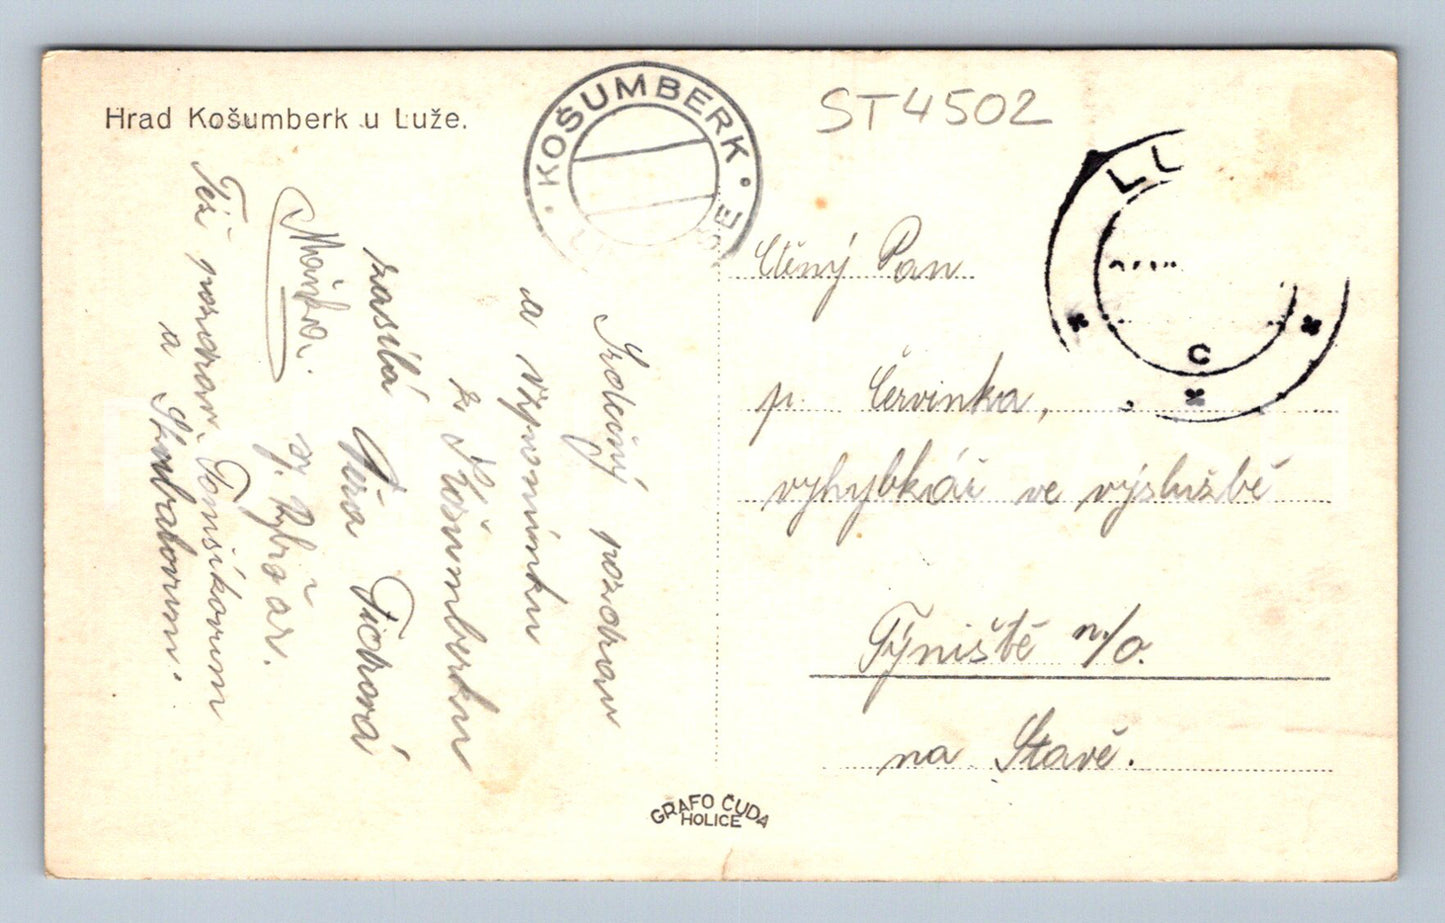 Hrad Košumberk u Luže.
KOŠUMBERK
ŽE
ST4502
LU
C
Ctěný Pan
p. Červinka,
vyhybkář ve výslužbě
Týniště n/O.
na Stavě.
Srdečný pozdrav
a vzpomínku
z Košumberku
zasílá Věra Tichová
Mařka.
Též pozdrav Tomšíkovum
a
GRAFO ČUDA
HOLICE